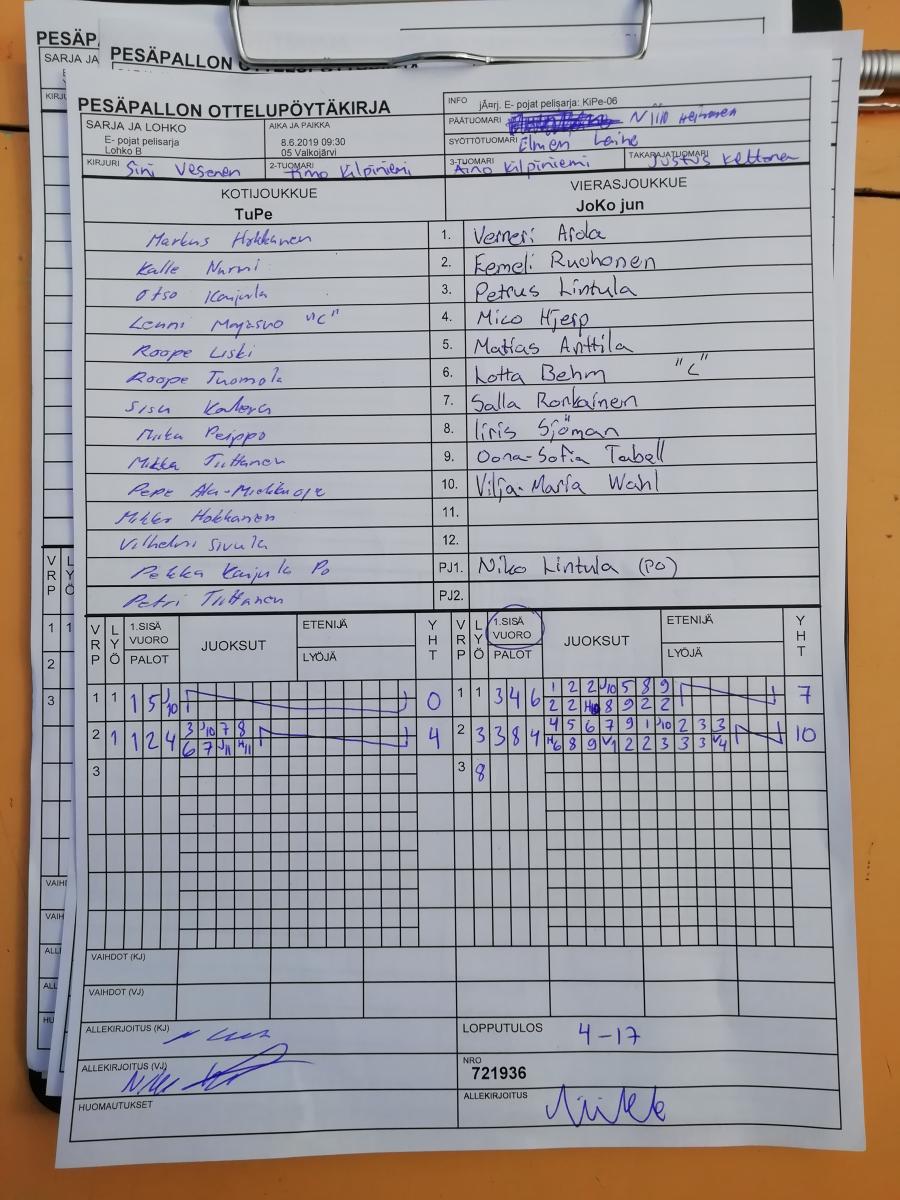 PESÄP
PESÄPALLON OTTELUPÖYTÄKIRJA
SARJA JA
KIRJU
PESÄPALLON OTTELUPÖYTÄKIRJA
INFO jÃ¤rj. E- pojat pelisarja: KiPe-06
SARJA JA LOHKO
E- pojat pelisarja
Lohko B
AIKA JA PAIKKA
8.6.2019 09:30
05 Valkojärvi
PÄÄTUOMARI Niilo
SYÖTTÖTUOMARI Elmen Laine
KIRJURI Sini Vesanen
2-TUOMARI Aino Kilpiniemi
3-TUOMARI Aino Kilpiniemi
TAKARAJATUOMARI Justus Keltanen
KOTIJOUKKUE
TuPe
VIERASJOUKKUE
JoKo jun
Markus Hokkanen 1. Verneri Arola
Kalle Nurmi 2. Eemeli Ruohonen
Otso Kanjula 3. Petrus Lintula
Lenni Majasuo "C" 4. Mico Hjerp
Roope Liski 5. Matias Anttila
Roope Tuomola 6. Lotta Behm "C"
Sisu 7. Salla Ronkainen
Miika Peippo 8. Iiris Sjöman
Mikka Tiittanen 9. Oona-Sofia Tabell
Pepe 10. Vilja-Maria Wahl
Mikko Hokkanen 11.
Vilhelmi Sivula 12.
Pekka Kanjula Po PJ1. Niko Lintula (PO)
Petri Tiittanen PJ2.
VRP LYÖ 1.SISÄ VUORO PALOT JUOKSUT ETENIJÄ LYÖJÄ YHT
VRP LYÖ 1.SISÄ VUORO PALOT JUOKSUT ETENIJÄ LYÖJÄ YHT
1 1 1 5 J10 0 1 1 3 4 6 1 2 2 J10 5 8 9 7
2 2 H10 8 9 2 2
2 1 1 2 4 3 J10 7 8 4 2 3 3 8 4 4 5 6 7 9 1 J10 2 3 3 10
6 7 J11 H11 H6 8 9 V1 2 2 3 3 3 V4
3 3 8
VAIHDOT (KJ)
VAIHDOT (VJ)
ALLEKIRJOITUS (KJ)
LOPPUTULOS 4-17
ALLEKIRJOITUS (VJ)
NRO
721936
HUOMAUTUKSET
ALLEKIRJOITUS